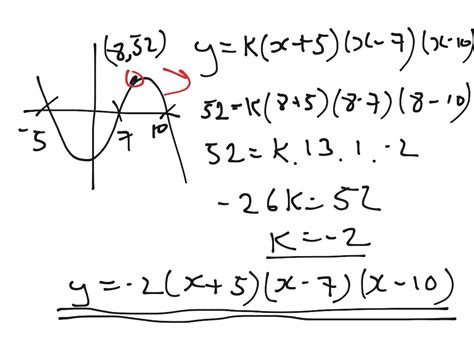 (-8,52)
y=K(x+5)(x-7)(x-10)
52=K(8+5)(8-7)(8-10)
-5 7 10
52=K.13.1.-2
-26K=52
K=-2
y=-2(x+5)(x-7)(x-10)